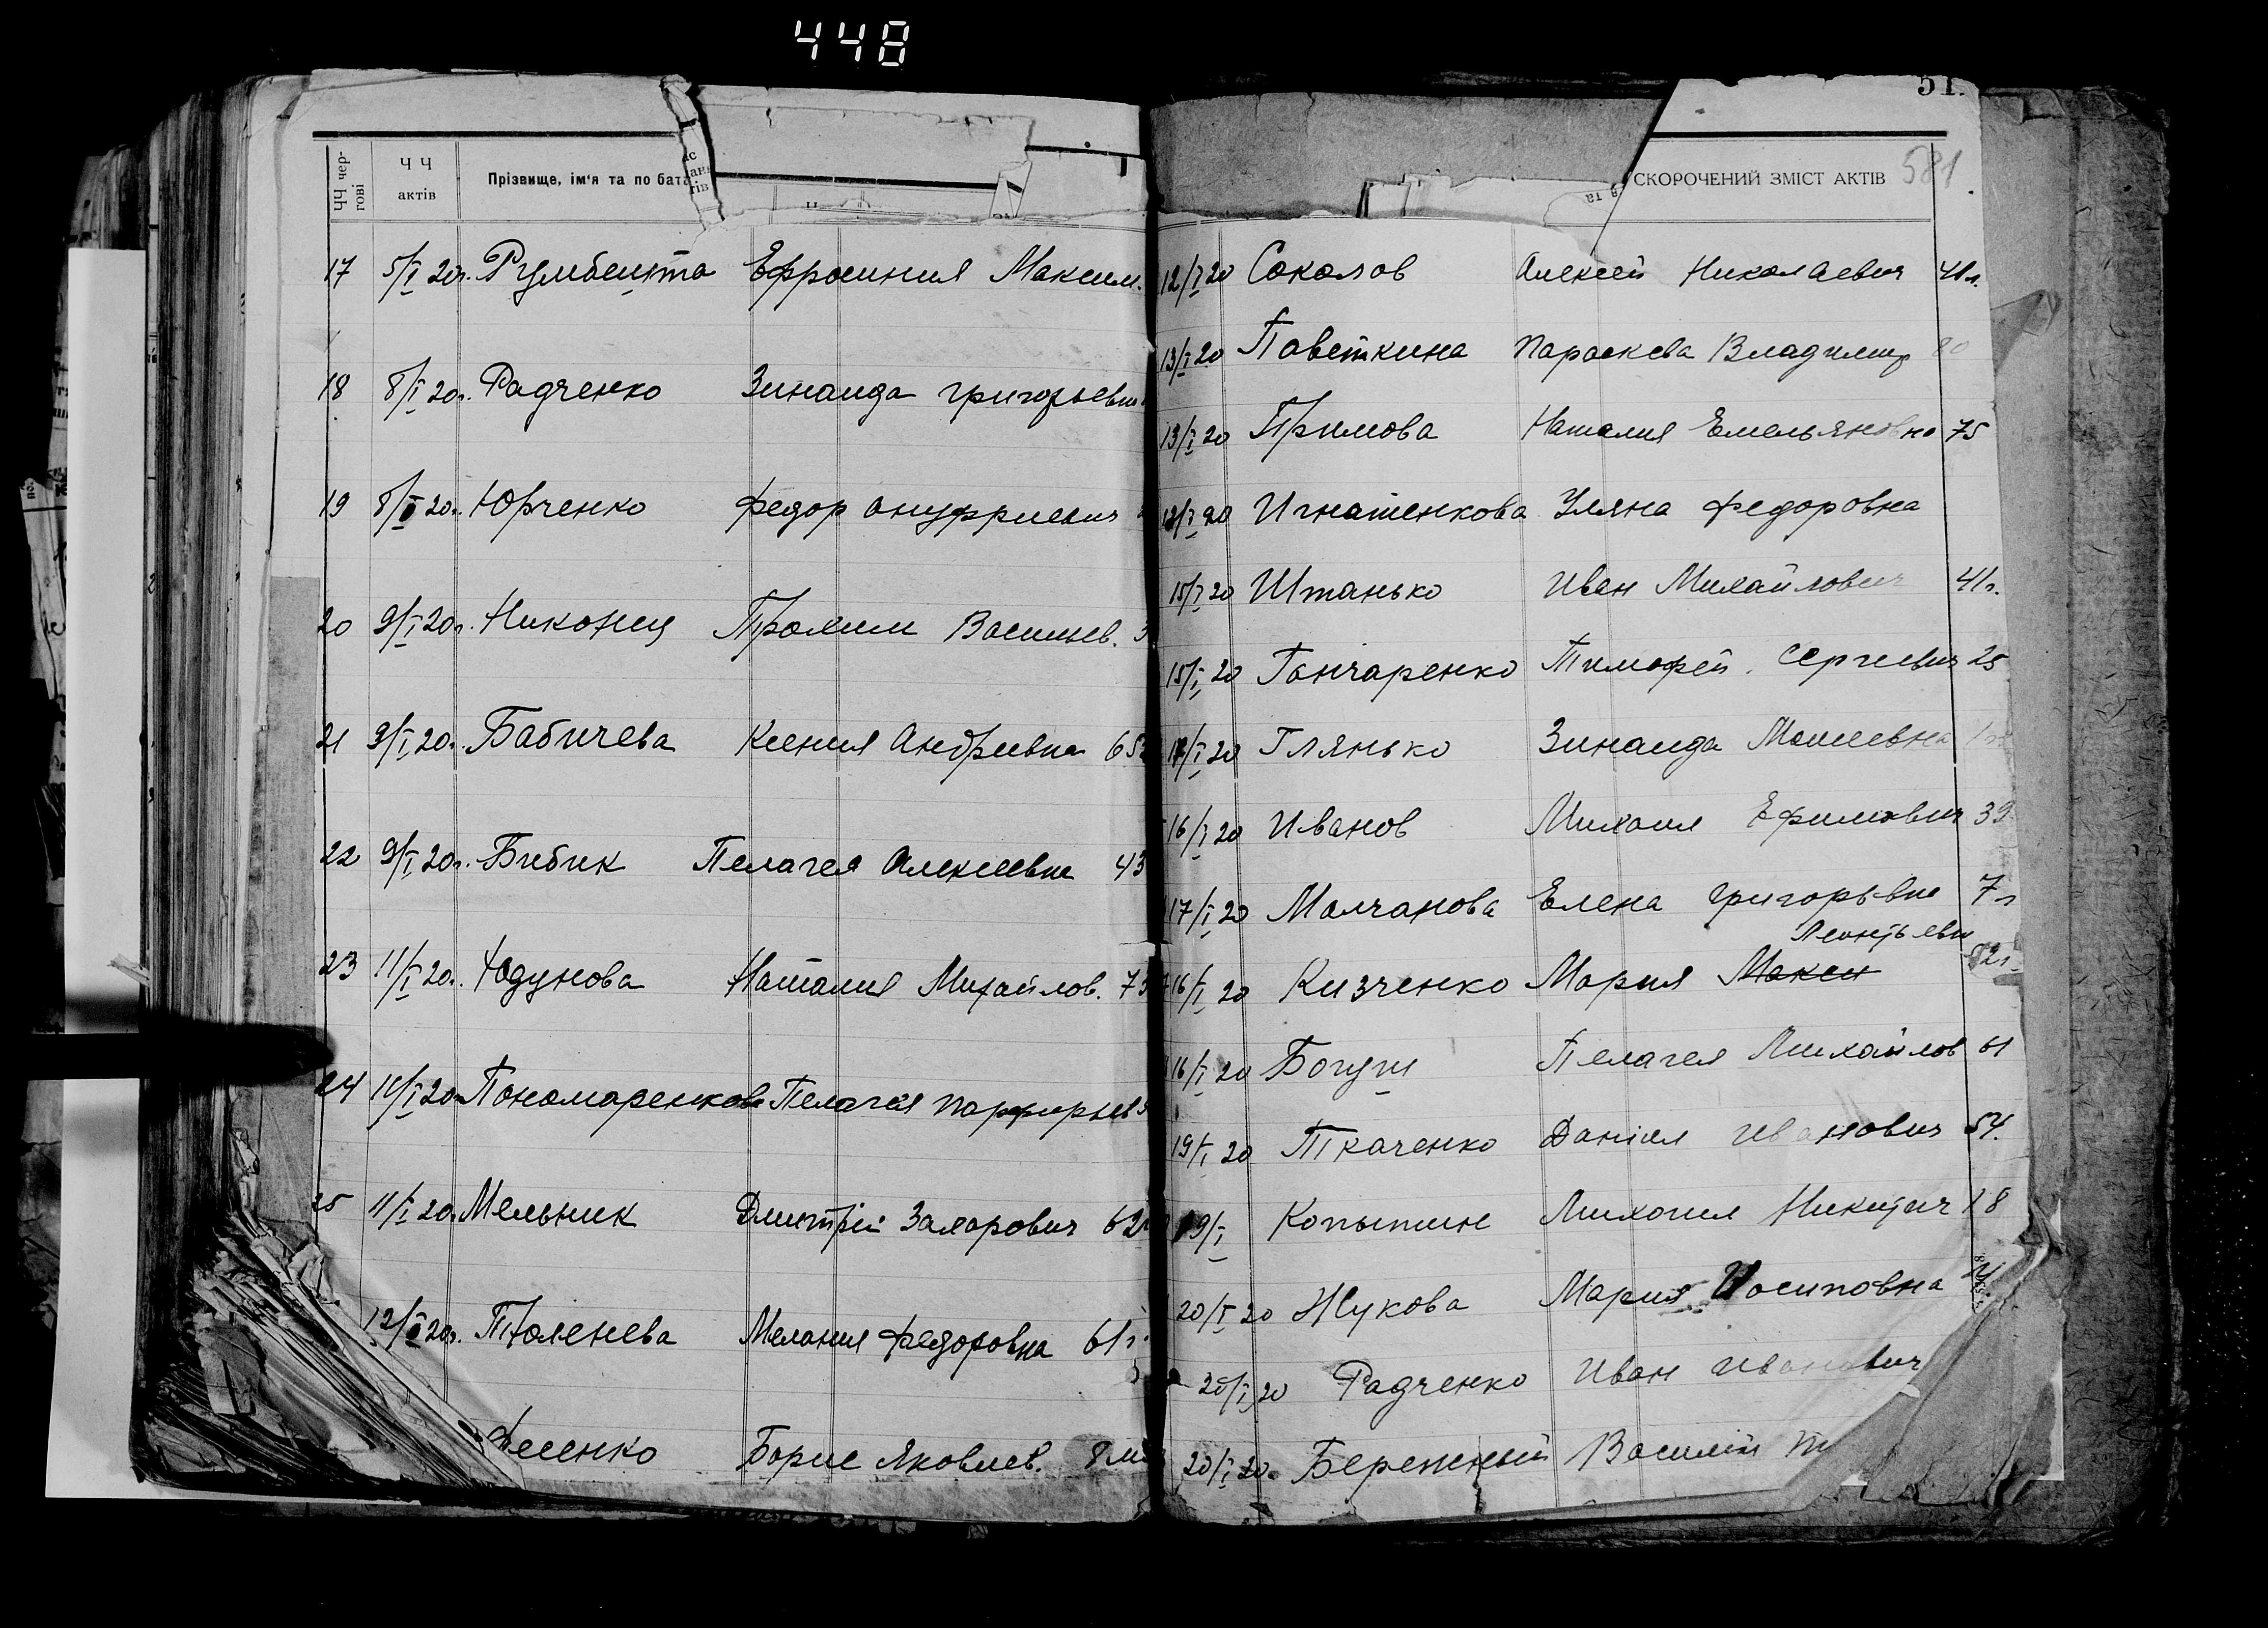 448
51.
581
ЧЧ чергові
ЧЧ актів
Прізвище, ім'я та по бата
СКОРОЧЕНИЙ ЗМІСТ АКТІВ
17 5/I 20г. Ефросиния Максим.
18 8/I 20г. Радченко Зинаида Григорьевна
19 8/I 20г. Юрченко Федор Онуфриевич
20 9/I 20г. Васильев.
21 9/I 20г. Бабичева Ксения Андриевна 65
22 9/I 20г. Бибик Пелагея Алексеевна 43
23 11/I 20г. Наталия Михайлов. 73
24 11/I 20г. Пономаренкова Пелагея Парфирьев
25 11/I 20г. Мельник Дмитрій Захарович 62
12/I 20г. Тюленева Мелания Федоровна 61г.
Фесенко Борис Яковлев. 8 м
12/I 20 Соколов Алексей Николаевич 41л.
13/I 20 Поветкина Параскева Владимир 80
13/I 20 Примова Наталия Емельяновна 75
13/I 20 Игнатенкова Уляна Федоровна
15/I 20 Штанько Иван Михайлович 41г.
15/I 20 Гончаренко Тимофей Сергиевич 25
I 20 Глянько Зинаида
16/I 20 Иванов Михаил Ефимович 39
17/I 20 Молчанова Елена Григорьевна 7л
Леонтьевн
16/I 20 Кизченко Мария Макси 82г.
16/I 20 Богуш Пелагея Михайлов 61
19/I 20 Ткаченко Даніил Иванович 54.
19/I Копытин Михаил Никитич 18
20/I 20 Жукова Мария Иосиповна
20/I 20 Радченко Иван Иванович
20/I 20. Бережный Василій